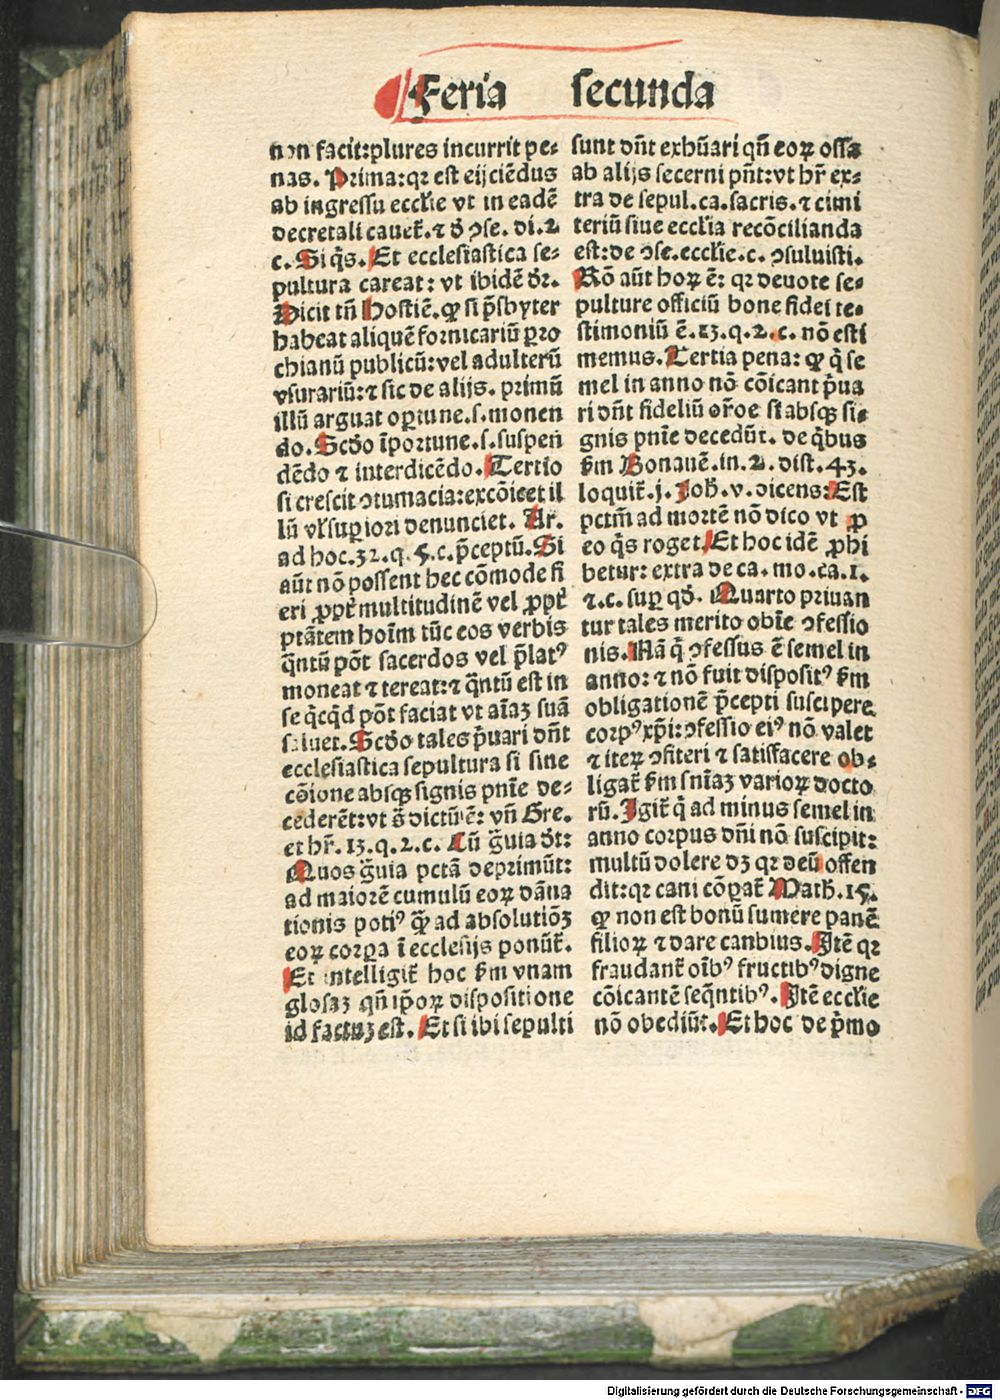 Feria secunda
non facit:plures incurrit pe⸗
nas. Prima:qꝛ est eijciēdus
ab ingressu ecclie vt in eadē
decretali cauet̃. ⁊ đ ↄse. di.2.
c. Si q̄s. Et ecclesiastica se⸗
pultura careat: vt ibidē dr̄.
Dicit tñ Hostiē. ꝙ si p̄sbyter
habeat aliquē fornicariū ꝑro
chianū publicū:vel adulterū
vsurariū:⁊ sic de alijs. primū
illū arguat oꝑtune.s.monen
do. Scdo īportune.s.suspen
dēdo ⁊ interdicēdo. Tertio
si crescit ↄtumacia:excōicet il
lū vl̓ suꝑiori denunciet. Ar.
ad hoc.32.q.5.c.p̄ceptū.Si
aūt nō possent hec cōmode fi
eri ꝓpt̃ multitudinē vel ꝓpt̃
ptātem hoīm tūc eos verbis
q̄ntū pōt sacerdos vel p̄latꝰ
moneat ⁊ tereat:⁊ q̄ntū est in
se q̄cq̄d pōt faciat vt aīaꝫ suā
saluet. Scdo tales p̄uari dn̄t
ecclesiastica sepultura si sine
cōione absqꝫ signis pnīe de⸗
cederēt:vt s̄ dictū ē: vn̄ Gre.
et hr̄. 13. q. 2. c. Cū ḡuia dr̄t:
Quos ḡuia pctā deprimūt:
ad maiorē cumulū eoꝝ dāna
tionis potiꝰ ꝙ̄ ad absolutiōꝫ
eoꝝ corꝑa ī ecclesijs ponūt̃.
Et intelligit̃ hoc ẜm vnam
glosaꝫ qn̄ ip̄oꝝ dispositione
id factuꝫ est. Et si ibi sepulti
sunt dn̄t exhūari qn̄ eoꝝ ossa
ab alijs secerni pn̄t:vt hr̄ ex⸗
tra de sepul.ca.sacris.⁊ cimi
teriū siue ecclia recōcilianda
est:de ↄse.ecclie.c. ↄsuluisti.
Rō aūt hoꝝ ē: qꝛ deuote se⸗
pulture officiū bone fidei te⸗
stimoniū ē.13.q.2.c. nō esti
memus. Tertia pena: ꝙ q̄ se
mel in anno nō cōicant p̄ua
ri dn̄t fideliū or̄oe si absqꝫ si⸗
gnis pnīe decedūt. de q̄bus
ẜm Bonauē.in.2. dist.43.
loquit̃.j. Joh̄.v.dicens:Est
pctm̄ ad mortē nō dico vt ꝓ
eo q̄s roget. Et hoc idē ꝓhi
betur: extra de ca. mo.ca.1.
⁊.c. suꝑ qđ. Quarto priuan
tur tales merito obīe ↄfessio
nis. Nā q̄ ↄfessus ē semel in
anno: ⁊ nō fuit dispositꝰ ẜm
obligationē p̄cepti suscipere
corpꝰ xp̄i:ↄfessio eiꝰ nō valet
⁊ iteꝝ ↄfiteri ⁊ satisfacere ob⸗
ligat̃ ẜm snīaꝫ varioꝝ docto
rū. Igit̃ q̄ ad minus semel in
anno corpus dn̄i nō suscipit:
multū dolere dꝫ qꝛ deū offen
dit:qꝛ cani cōꝑat̃ Math̄.15.
ꝙ non est bonū sumere panē
filioꝝ ⁊ dare canibus. Itē qꝛ
fraudant̃ oībꝰ fructibꝰ digne
cōicantē seq̄ntibꝰ. Itē ecclie
nō obediūt. Et hoc de p̄mo
Digitalisierung gefördert durch die Deutsche Forschungsgemeinschaft - DFG